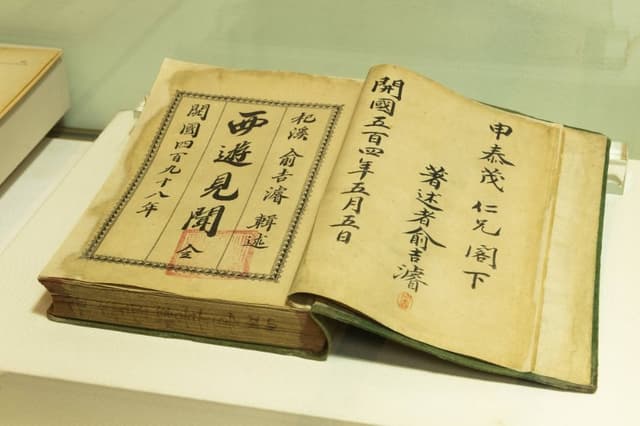 申泰茂 仁兄閣下
著述者俞吉濬
開國五百四年五月五日
杞溪 俞吉濬 輯述
西遊見聞 全
開國四百九十八年